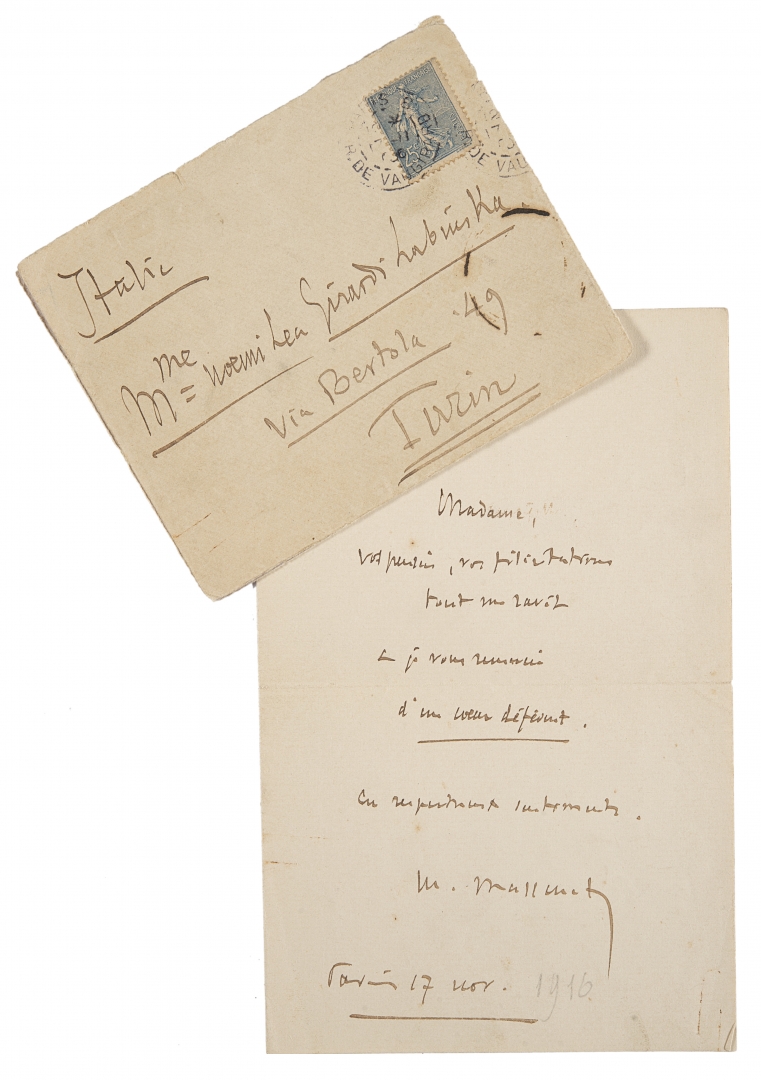 25c
R. DE VAUGIRARD
Italie
Mme Noemi Lea Girardi Labinska
Via Bertola 49
Turin
Madame,
vos pensées, vos félicitations
tout me ravit
et je vous remercie
d'un cœur déférent.
En respectueux sentiments.
M. Massenet
Paris 17 nov. 1916.